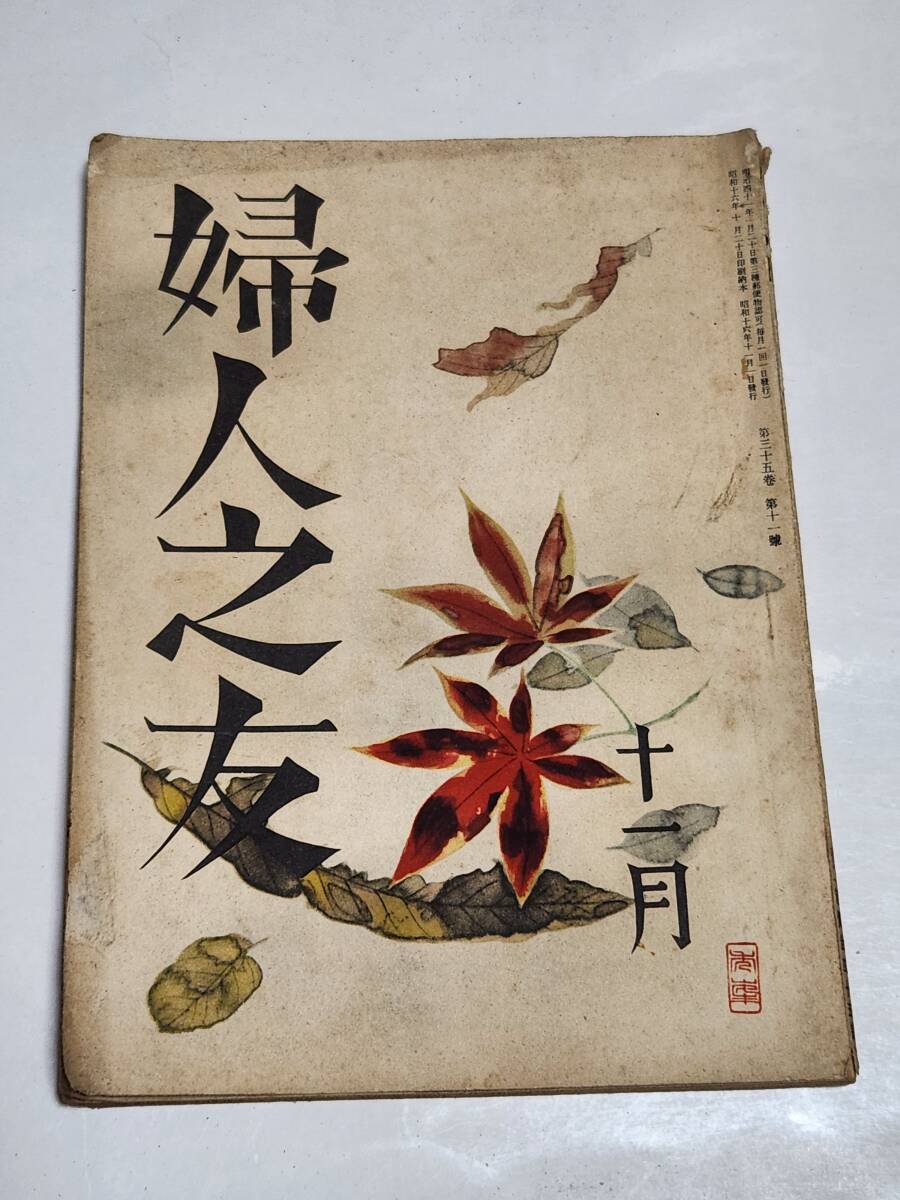 明治四十一年一月二十日第三種郵便物認可(每月一回一日發行)
昭和十六年十月二十日印刷納本 昭和十六年十一月一日發行
第三十五卷 第十一號
婦人之友
十一月